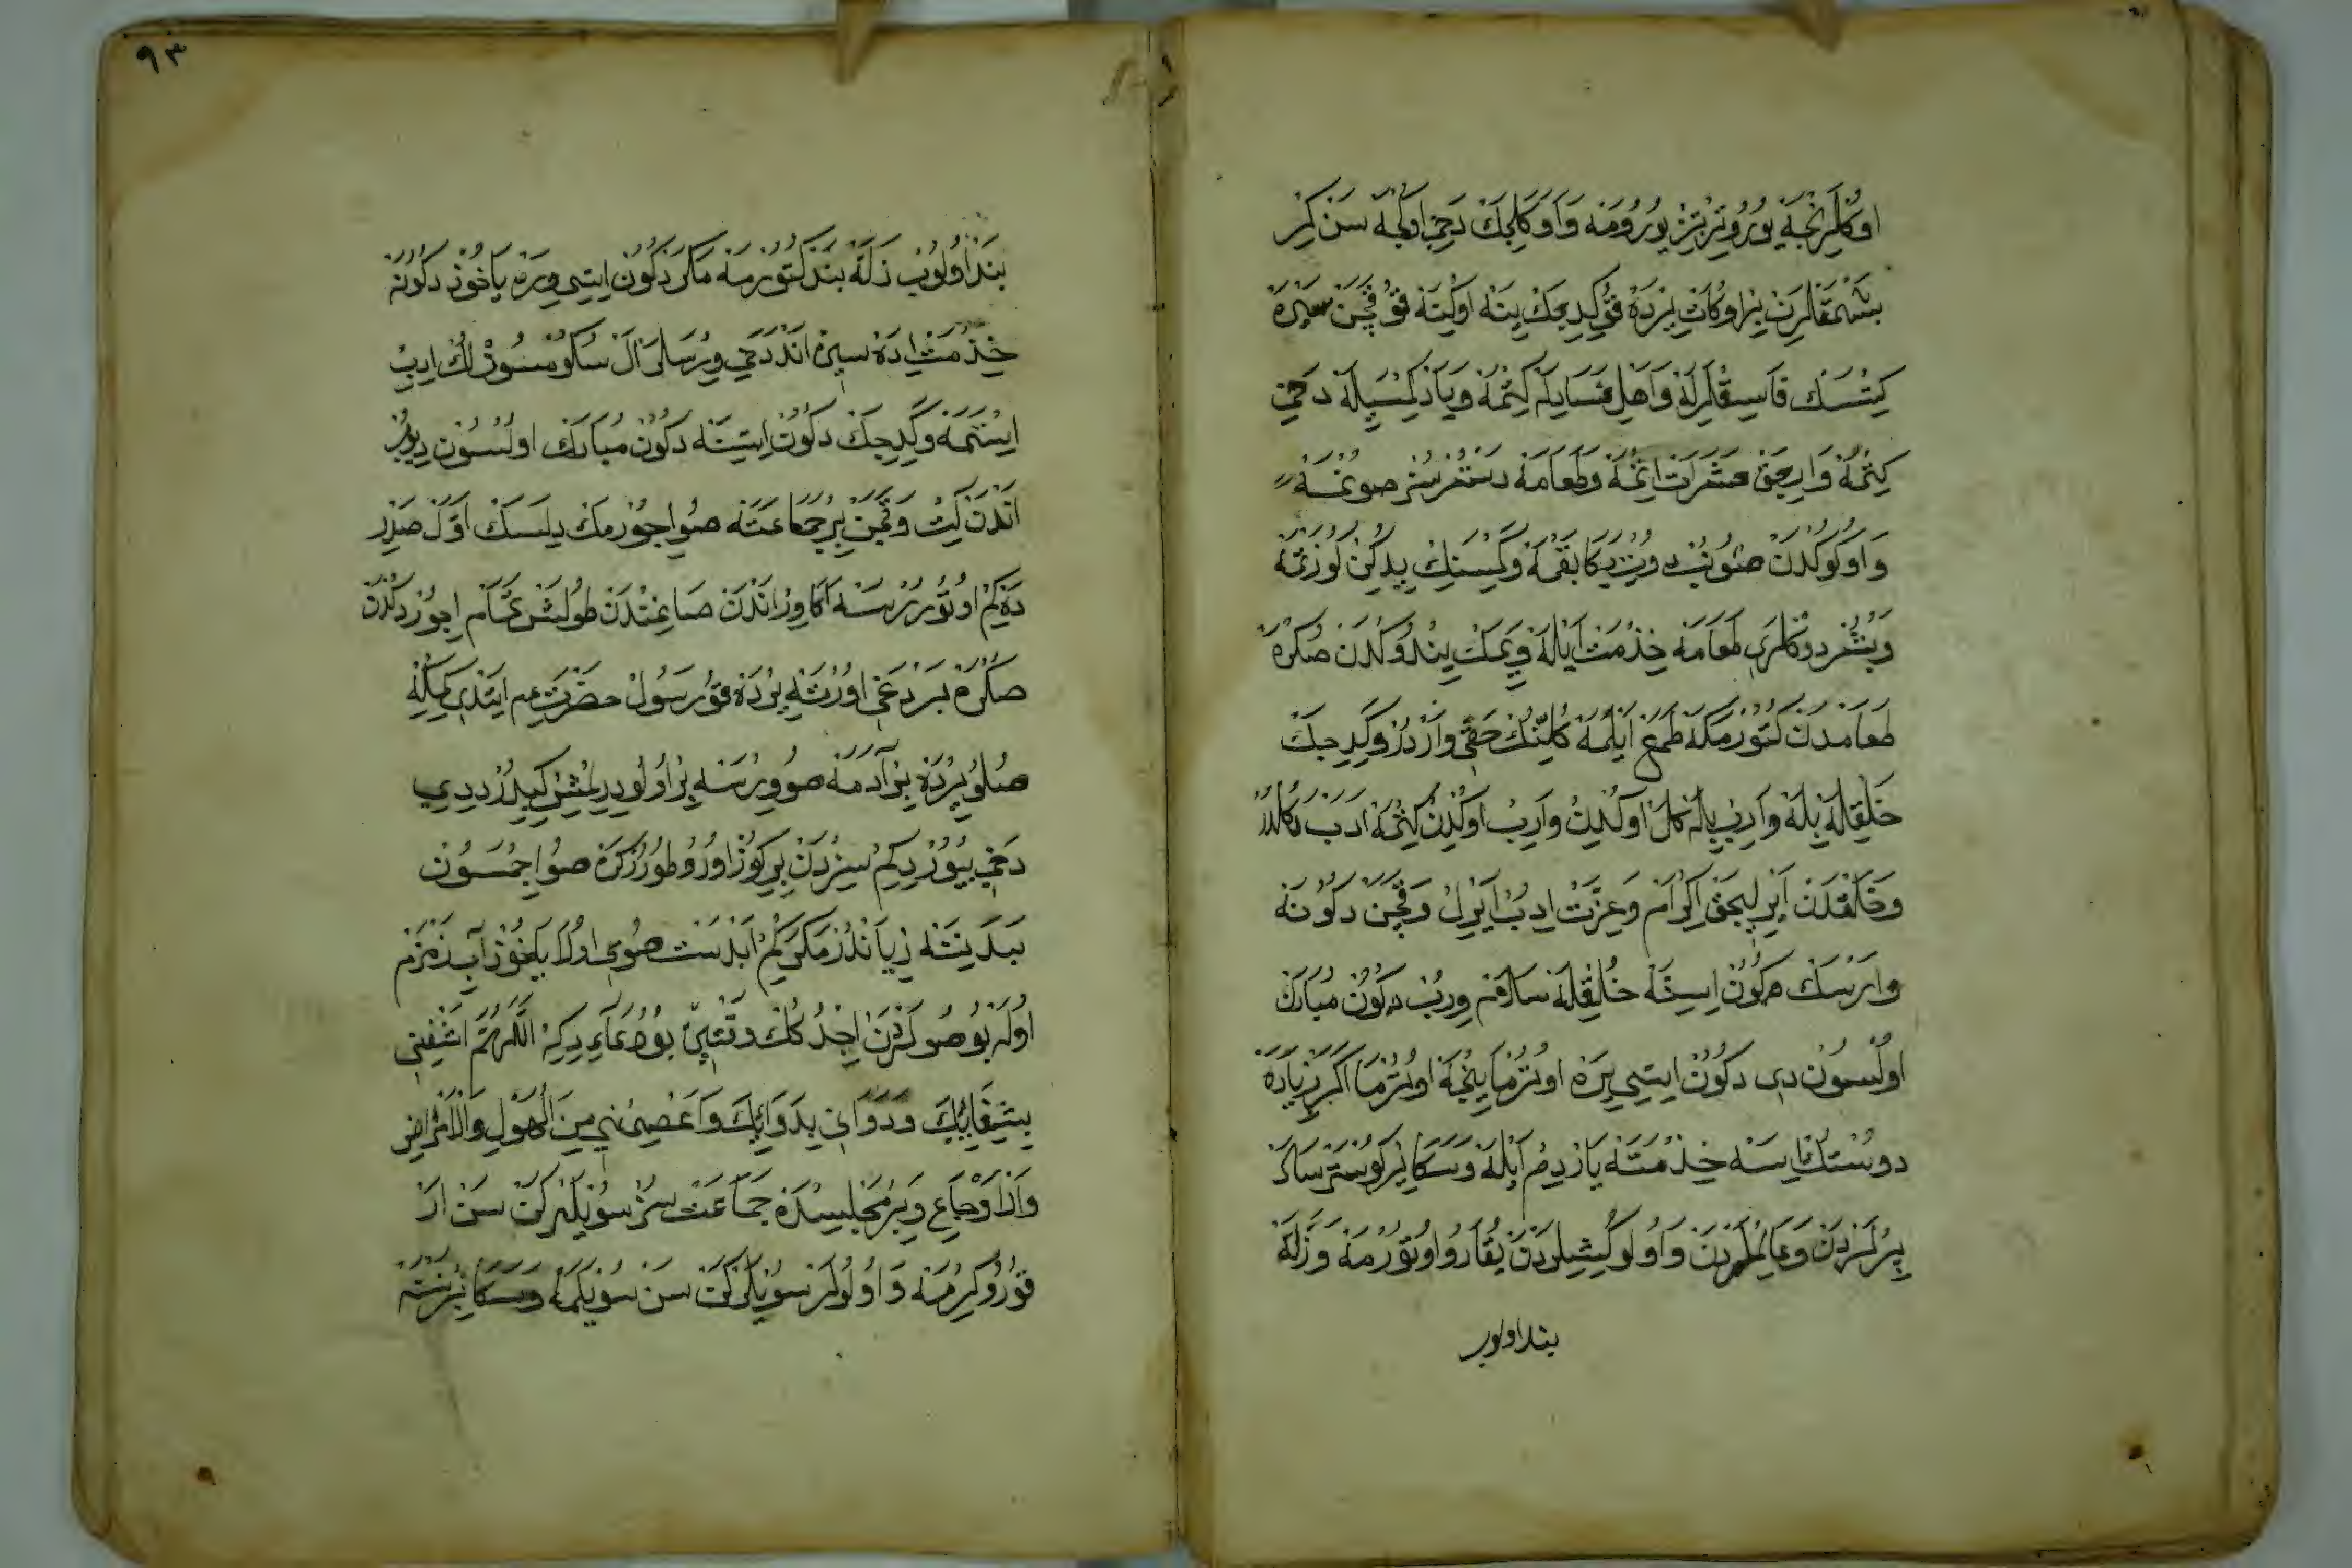 اوكلرنجه يورو تيز تيز يورومه واوكلجك دخى اولجه سن كير
بشمقلرن بر اوكات يرده قو كيديجك ينه اوكينه قو قچن سيره
كتسك فاسقلرله واهل فساديله كتمه ويادكمسيله دخى
كتمه واريجق عشرت اتمه وطعامه دستورسز صونمه
واوكوكدن صونيب دوب يكا بقمه وكمسنك ييدكين كوزتمه
وبنفردوكلرى طعامه خذمت ايله ويمك يندوكدن صكره
طعامدن كتورمكه طمع ايلمه كلينك حقى واردر وكيديجك
خلقله بيله وارب بيله كل اوكلدين وارب اوكدن كتمه ادب دكلدر
وخلقدن ايرليجق اكرام وعزت ايدب ايرل وقچن دكونه
وارسك دكون استه خلقله سلام ورب دكون مبارك
اولسون دى دكون ايتسى يره اوترمايخه اوترما اكر زياده
دوستك ايسه خذمتنه ياردم ايله وسكا ير كوسترسلر
پيرلردن وعالملردن واولو كشيلردن يقارو اوتورمه وزله
بند اولوب
٩٣
بند اولوب زله بند كتورمه مكر دكون ايتسى وره ياخوذ دكونه
خذمت ايده سين اندن دخى ويرسلر ال سكو مسوزلك ايدب
ايستمه وكيديجك دكون ايتسنه دكون مبارك اولسون ديوب
اندن كيت وقچن بر جماعته صو اچورمك ديلسك اول صدر
ده كم اوتوررسه اكا ور اندن صاغندن طولش تمام اچوردكدن
صكره بردغى اورته يرده قو رسول حضرت عم ايتدى كيمكنه
صولو يرده بر آدمه صو ويرسه بر اولو ديرلمش كيبدر ديدى
دخى بيوردى كم سيزدن بر كوز اورو طورركن صو اچمسون
ببدننه زياندر مكر كم ابدست صوى اولا ياخوذ آب زمزم
اوله بو صولردن اچدكك وقتين بو دعاء ديكه اللهم اشفنى
بشفائك ودوانى بدوائك واعصمنى من الهول والامراض
والاوجاع وبر مجلسده جماعت سوز سويلركن سن ار
قورو كرمه واولولر سويلركن سن سويلمه وسكا بر نسنه